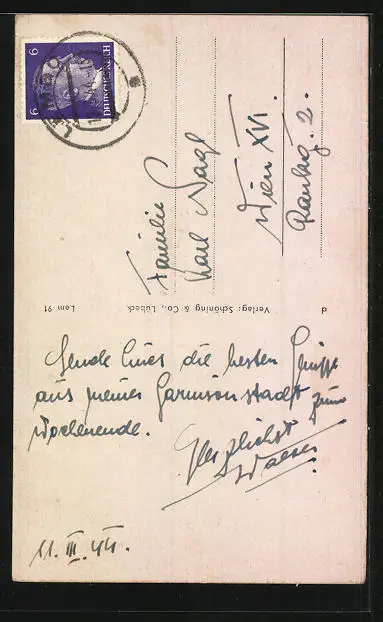 6 6
DEUTSCHES REICH
Familie
Karl Nagl
Wien XVI.
2.
Lem 91
Verlag: Schöning & Co., Lübeck
d
Sende Euch die besten Grüsse
aus meiner Garnisonstadt zum
Wochenende.
Herzlichst
11. III. 44.